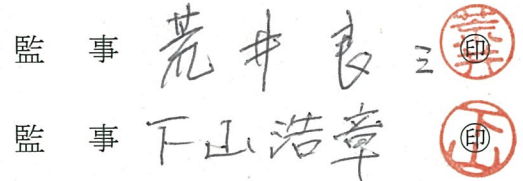 監 事 荒井良三 ㊞
監 事 下山浩章 ㊞